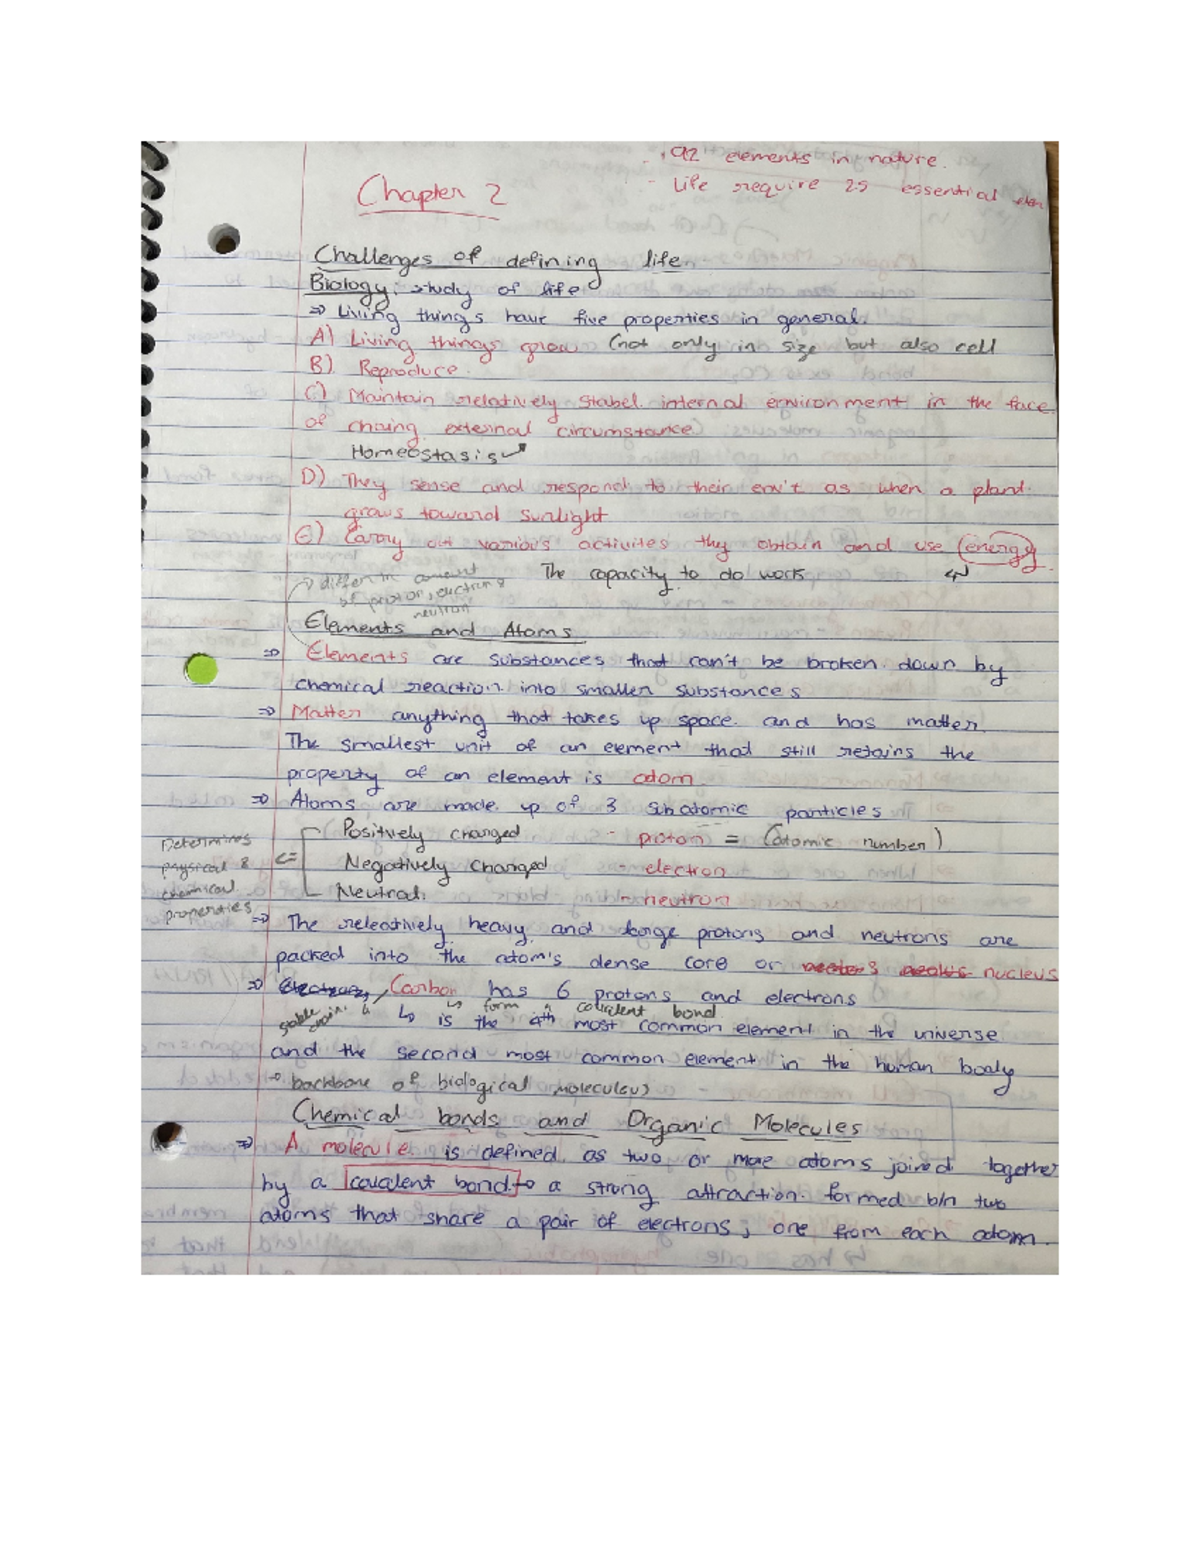 - 92 elements in nature.
- Life require 25 essential
Chapter 2
Challenges of defining life.
Biology: study of life
⇒ Living things have five properties in general.
A) Living things grow (not only in size but also cell
B) Reproduce.
C) Maintain relatively stabel internal environment in the face
of chaing external circumstance
Homeostasis
D) They sense and respond to their env't as when a plant
grows toward sunlight
E) Carry out various activites they obtain and use energy
The capacity to do work
→ different amount
of proton, electron &
neutron
Elements and Atoms
⇒ Elements are substances that can't be broken down by
chemical reaction into smaller substances
⇒ Matter anything that takes up space and has matter.
The smallest unit of an element that still retains the
property of an element is atom
⇒ Atoms are made up of 3 subatomic particles
Positively charged - proton = (atomic number)
Determines
physical &
chemical
properties
Negatively Charged - electron
Neutral - neutron
⇒ The releatively heavy and large protons and neutrons are
packed into the atom's dense core or nucleus
⇒ Carbon has 6 protons and electrons
↳ form 4 covalent bond
stable chain
↳ is the 4th most common element in the universe
and the second most common element in the human body
→ backbone of biological molecules
Chemical bonds and Organic Molecules
⇒ A molecule is defined as two or more atoms joined together
by a covalent bond → a strong attraction formed b/n two
atoms that share a pair of electrons; one from each atom.